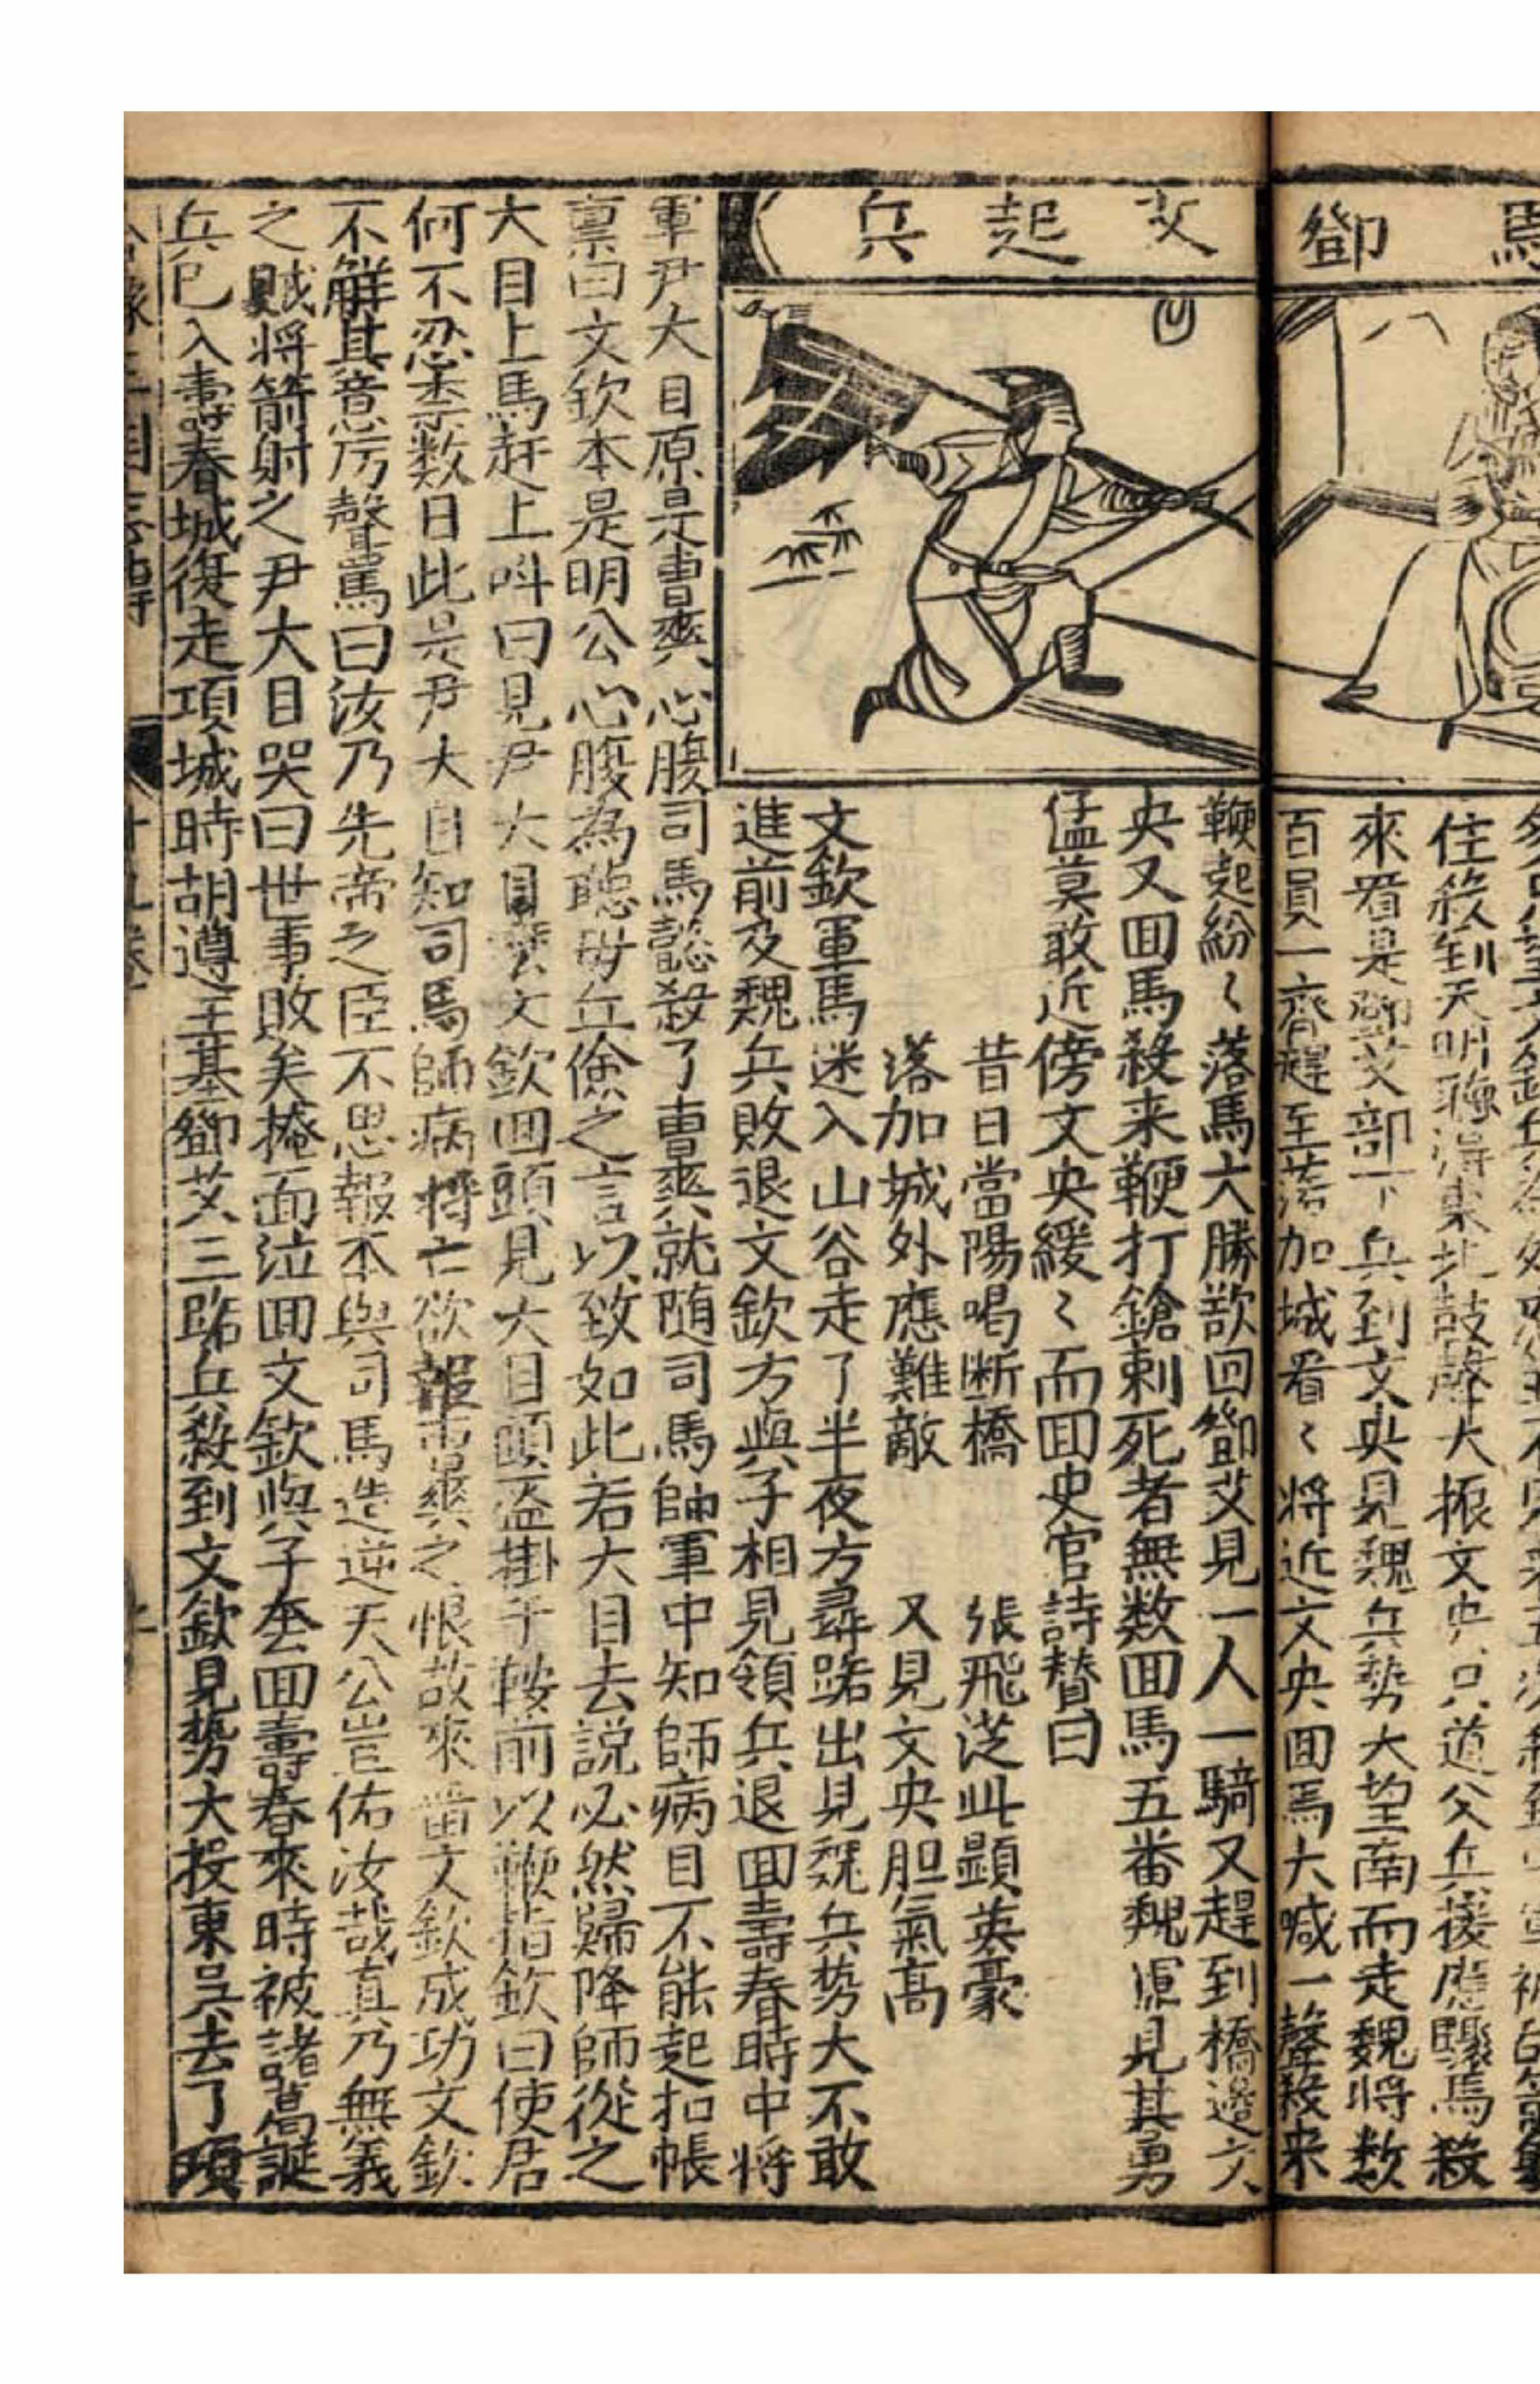 馬鄧
艾起兵
住殺到天明聽得東北鼓聲大振文央只道父兵援應驟馬殺
來看是鄧艾部下兵到文央見魏兵勢大望南而走魏將数
百員一齊趕至落加城看〻將近文央囬馬大喊一聲殺来
鞭起紛〻落馬大勝欲回鄧艾見一人一騎又趕到橋邊文
央又囬馬殺来鞭打鎗刺死者無数囬馬五番魏軍見其勇
猛莫敢近傍文央緩〻而囬史官詩賛曰
昔日當陽喝断橋 張飛從此顯英豪
落加城外應難敵 又見文央胆氣高
文欽軍馬迷入山谷走了半夜方尋路出見魏兵势大不敢
進前及魏兵敗退文欽方與子相見領兵退囬壽春時中將
軍尹大目原是曹爽心腹司馬懿殺了曹爽就随司馬師軍中知師病目不能起扣帳
禀曰文欽本是明公心腹為聽毋丘儉之言以致如此若大目去説必然歸降師從之
大目上馬赶上呌曰見尹大目麼文欽囬頭見大目頭盔掛于鞍前以鞭指欽曰使君
何不忍柰数日此是尹大目知司馬師病將亡欲報曹爽之恨故來畱文欽成功文欽
不解其意厉聲罵曰汝乃先帝之臣不思報本與司馬造逆天公豈佑汝哉真乃無義
之賊將箭射之尹大目哭曰世事敗矣掩面泣囬文欽與子奔囬壽春來時被諸葛誕
兵已入壽春城復走項城時胡遵王基鄧艾三路兵殺到文欽見势大投東吳去了項